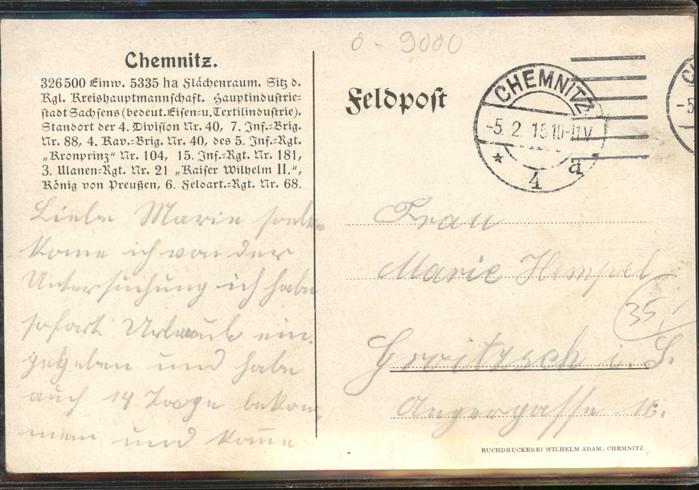 Chemnitz.
326500 Einw. 5335 ha Flächenraum. Sitz d.
Kgl. Kreishauptmannschaft. Hauptindustrie-
stadt Sachsens (bedeut. Eisen- u. Textilindustrie).
Standort der 4. Division Nr. 40, 7. Inf.-Brig.
Nr. 88, 4. Kav.-Brig. Nr. 40, des 5. Inf.-Rgt.
„Kronprinz" Nr. 104, 15. Inf.-Rgt. Nr. 181,
3. Ulanen-Rgt. Nr. 21 „Kaiser Wilhelm II.",
König von Preußen, 6. Feldart.-Rgt. Nr. 68.
Liebe Marie
kome ich von der
Untersuchung ich habe
sofort Urlaub ein
gegeben und habe
auch 14 Tage bekom
men und kome
0-9000
Feldpost
CHEMNITZ
-5.2.15 10-11V
* 4 a
Frau
Marie Hempel
35
Groitzsch i. S.
Angergasse 16.
BUCHDRUCKEREI WILHELM ADAM, CHEMNITZ